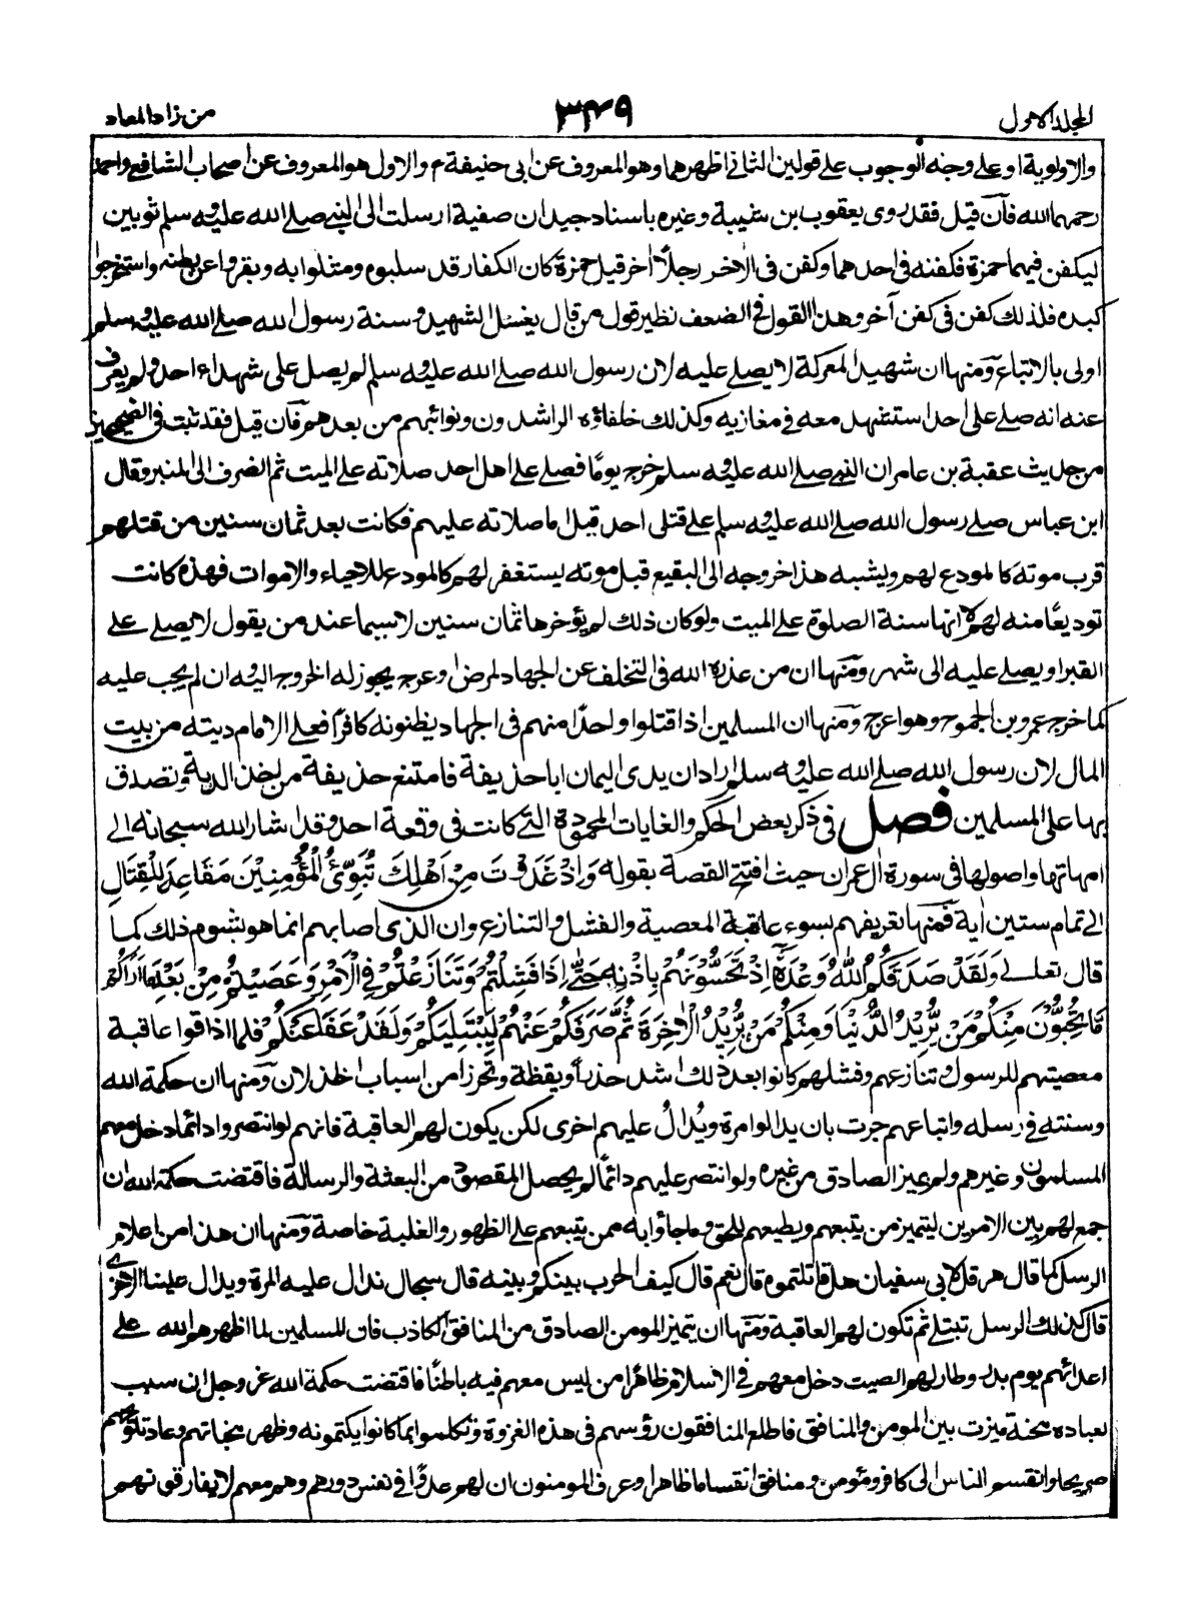 المجلد الاول
٣٤٩
من زاد المعاد
والاولوية او على وجه الوجوب على قولين الثاني اظهرهما وهو المعروف عن ابي حنيفة م والاول هو المعروف عن اصحاب الشافعي واحمد
رحمهما الله فآن قيل فقد روى يعقوب بن شيبة وغيره باسناد جيد ان صفية ارسلت الى النبي صلى الله عليه وسلم ثوبين
ليكفن فيهما حمزة فكفنه في احدهما وكفن في الاخر رجلاً اخر قيل حمزة كان الكفار قد سلبوه ومثلوا به وبقروا عن بطنه واستخرجوا
كبده فلذلك كفن في كفن آخر وهذا القول في الضعف نظير قول من قال يغسل الشهيد وسنة رسول الله صلى الله عليه وسلم
اولى بالاتباع ومنها ان شهيد المعركة لا يصلى عليه لان رسول الله صلى الله عليه وسلم لم يصل على شهداء احد ولم يعرف
عنه انه صلى على احد استشهد معه في مغازيه وكذلك خلفاؤه الراشدون ونوابهم من بعدهم فآن قيل فقد ثبت في الصحيحين
من حديث عقبة بن عامر ان النبي صلى الله عليه وسلم خرج يومًا فصلى على اهل احد صلاته على الميت ثم انصرف الى المنبر وقال
ابن عباس صلى رسول الله صلى الله عليه وسلم على قتلى احد قيل اما صلاته عليهم فكانت بعد ثمان سنين من قتلهم
قرب موته كالمودع لهم ويشبه هذا خروجه الى البقيع قبل موته يستغفر لهم كالمودع للاحياء والاموات فهذه كانت
توديعًا منه لهم لا انها سنة الصلوة على الميت ولو كان ذلك لم يؤخرها ثمان سنين لا سيما عند من يقول لا يصلى على
القبر او يصلى عليه الى شهر ومنها ان من عذره الله في التخلف عن الجهاد لمرض او عرج يجوز له الخروج اليه وان لم يجب عليه
كما خرج عمرو بن الجموح وهو اعرج ومنها ان المسلمين اذا قتلوا واحدًا منهم في الجهاد يظنونه كافرًا فعلى الامام ديته من بيت
المال لان رسول الله صلى الله عليه وسلم اراد ان يدى اليمان ابا حذيفة فامتنع حذيفة من اخذ الدية وتصدق
بها على المسلمين فصل في ذكر بعض الحكم والغايات المحمودة التي كانت في وقعة احد وقد اشار الله سبحانه الى
امهاتها واصولها في سورة ال عمران حيث افتتح القصة بقوله وَاِذْ غَدَوْتَ مِنْ اَهْلِكَ تُبَوِّئُ الْمُؤْمِنِيْنَ مَقَاعِدَ لِلْقِتَالِ
الى تمام ستين اية فمنها تعريفهم بسوء عاقبة المعصية والفشل والتنازع وان الذي اصابهم انما هو بشوم ذلك كما
قال تعالى وَلَقَدْ صَدَقَكُمُ اللّٰهُ وَعْدَهٗ اِذْ تَحُسُّوْنَهُمْ بِاِذْنِهٖ حَتّٰى اِذَا فَشِلْتُمْ وَتَنَازَعْتُمْ فِي الْاَمْرِ وَعَصَيْتُمْ مِنْ بَعْدِ مَا اَرَاكُمْ
مَا تُحِبُّوْنَ مِنْكُمْ مَنْ يُّرِيْدُ الدُّنْيَا وَمِنْكُمْ مَنْ يُّرِيْدُ الْاٰخِرَةَ ثُمَّ صَرَفَكُمْ عَنْهُمْ لِيَبْتَلِيَكُمْ وَلَقَدْ عَفَا عَنْكُمْ فلما ذاقوا عاقبة
معصيتهم للرسول وتنازعهم وفشلهم كانوا بعد ذلك اشد حذرًا ويقظة وتحرزا من اسباب الخذلان ومنها ان حكمة الله
وسنته في رسله واتباعهم جرت بان يدالوا مرة ويُدالُ عليهم اخرى لكن يكون لهم العاقبة فانهم لو انتصروا دائما دخل معهم
المسلمون وغيرهم ولم يميز الصادق من غيره ولو انتصر عليهم دائمًا لم يحصل المقصود من البعثة والرسالة فاقتضت حكمة الله ان
جمع لهم بين الامرين ليتميز من يتبعهم ويطيعهم للحق وما جاؤا به ممن يتبعهم على الظهور والغلبة خاصة ومنها ان هذا من اعلام
الرسل كما قال هرقل لابي سفيان هل قاتلتموه قال نعم قال كيف الحرب بينكم وبينه قال سجال ندال عليه المرة ويدال علينا الاخرى
قال كذلك الرسل تبتلى ثم تكون لهم العاقبة ومنها ان يتميز المومن الصادق من المنافق الكاذب فان المسلمين لما اظهرهم الله على
اعدائهم يوم بدر وطار لهم الصيت دخل معهم في الاسلام ظاهرًا من ليس معهم فيه باطنًا فاقتضت حكمة الله عز وجل ان سبب
لعباده محنة ميزت بين المومن والمنافق فاطلع المنافقون رؤسهم في هذه الغزوة وتكلموا بما كانوا يكتمونه وظهر مخباتهم وعاد تلويحهم
صريحا وانقسم الناس الى كافر ومؤمن ومنافق انقساما ظاهرا وعرف المومنون ان لهم عدوًا في نفس دورهم وهم معهم لا يفارقونهم